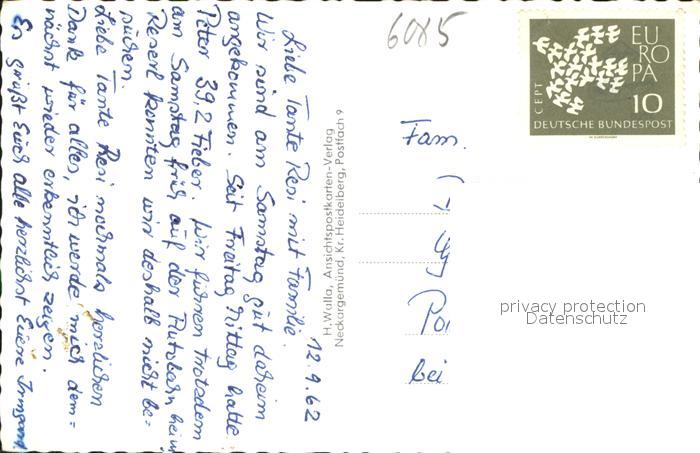 6085
EU
RO
PA
CEPT
10
DEUTSCHE BUNDESPOST
12.9.62
Liebe Tante Resi mit Familie.
Wir sind am Samstag gut daheim
angekommen. Seit Freitag Mittag hatte
Peter 39,2 Fieber. Wir fuhren trotzdem
am Samstag früh auf der Autobahn heim
Reserl konnten wir deshalb nicht be=
suchen.
Liebe Tante Resi nochmals herzlichen
Dank für alles, ich werde mich dem=
nächst wieder erkenntlich zeigen.
Es grüßt Euch alle herzlichst Euere Irmgard
H. Walla, Ansichtspostkarten-Verlag
Neckargemünd, Kr. Heidelberg, Postfach 9
Fam.
bei
privacy protection
Datenschutz